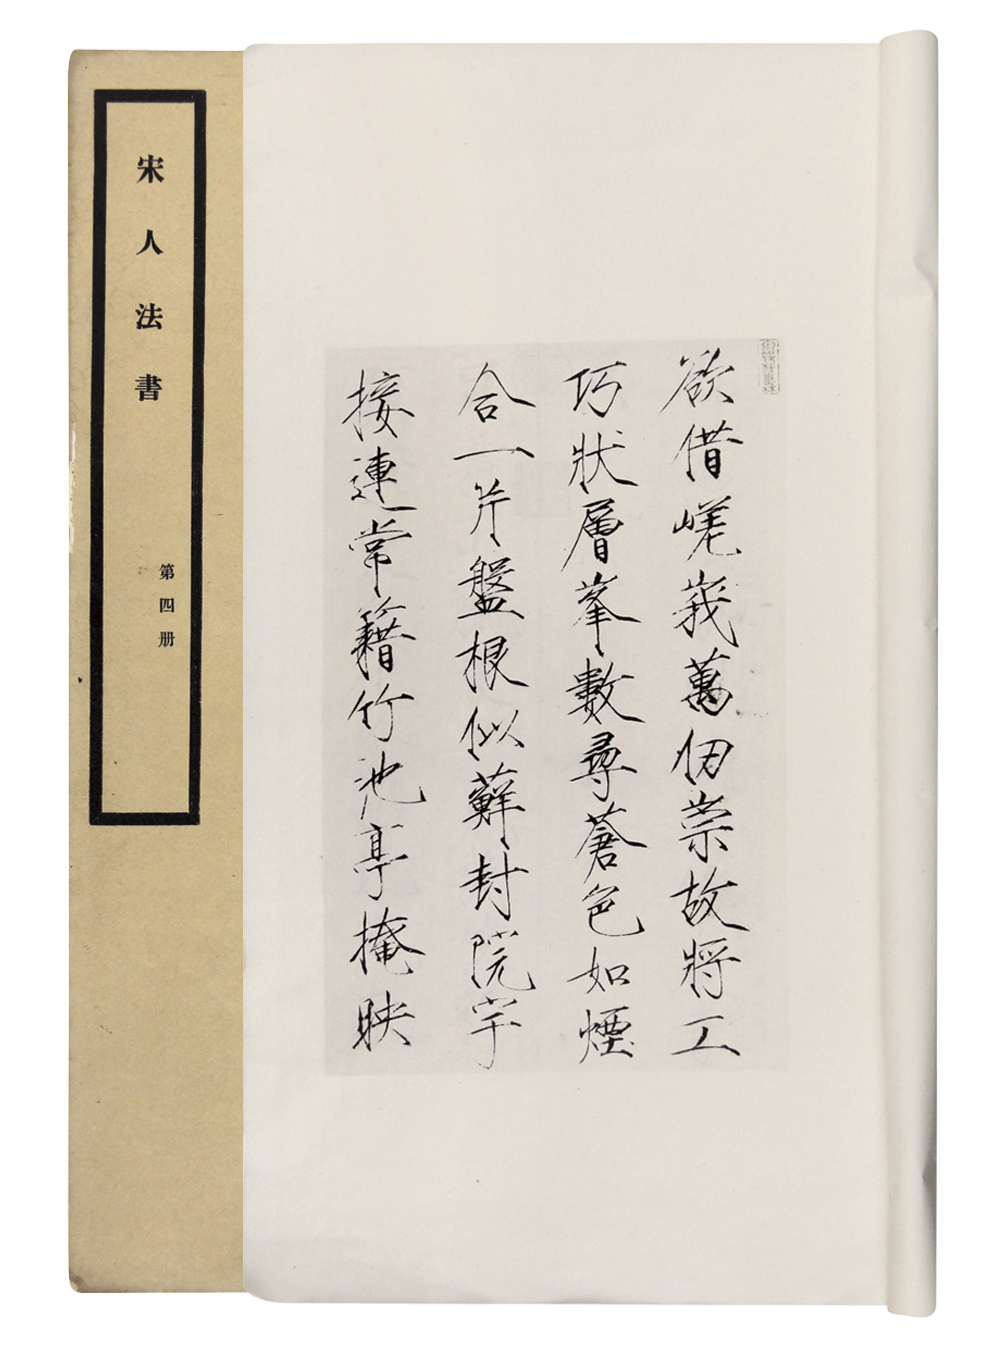 宋人法書
第四册
欲借嵯峩萬仞崇故將工
巧狀層峯數尋蒼色如煙
合一片盤根似蘚封院宇
接連常籍竹池亭掩映